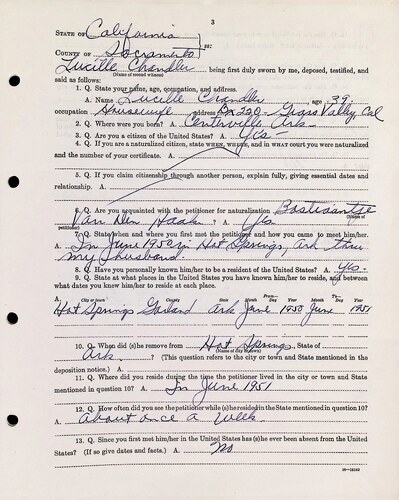 3
STATE OF California
ss:
COUNTY OF Sacramento
Lucille Chandler being first duly sworn by me, deposed, testified, and
(Name of second witness)
said as follows:
1. Q. State your name, age, occupation, and address.
A. Name Lucille Chandler age 39,
occupation Housewife address Bx 220 - Grass Valley, Cal
2. Q. Where were you born? A. Centerville Ark -
3. Q. Are you a citizen of the United States? A. Yes -
4. Q. If you are a naturalized citizen, state WHEN, WHERE, and in WHAT court you were naturalized
and the number of your certificate. A.
5. Q. If you claim citizenship through another person, explain fully, giving essential dates and
relationship. A.
6. Q. Are you acquainted with the petitioner for naturalization
(Name of
petitioner) Van Den ? A. Yes
7. Q. State when and where you first met the petitioner and how you came to meet him/her.
A. In June 1950 in Hot Springs, Ark thru
my husband.
8. Q. Have you personally known him/her to be a resident of the United States? A. Yes.
9. Q. State at what places in the United States you have known him/her to reside, and between what
dates you knew him/her to reside at each place.
From— To—
A. City or town County State Month Day Year Month Day Year
Hot Springs Garland Ark June 1950 June 1951
10. Q. When did (s)he remove from Hot Springs, State of
(Name of city or town)
Ark. ? (This question refers to the city or town and State mentioned in the
deposition notice.) A.
11. Q. Where did you reside during the time the petitioner lived in the city or town and State
mentioned in question 10? A. In June 1951
12. Q. How often did you see the petitioner while (s)he resided in the State mentioned in question 10?
A. About once a week.
13. Q. Since you first met him/her in the United States has (s)he ever been absent from the United
States? (If so give dates and facts.) A. No